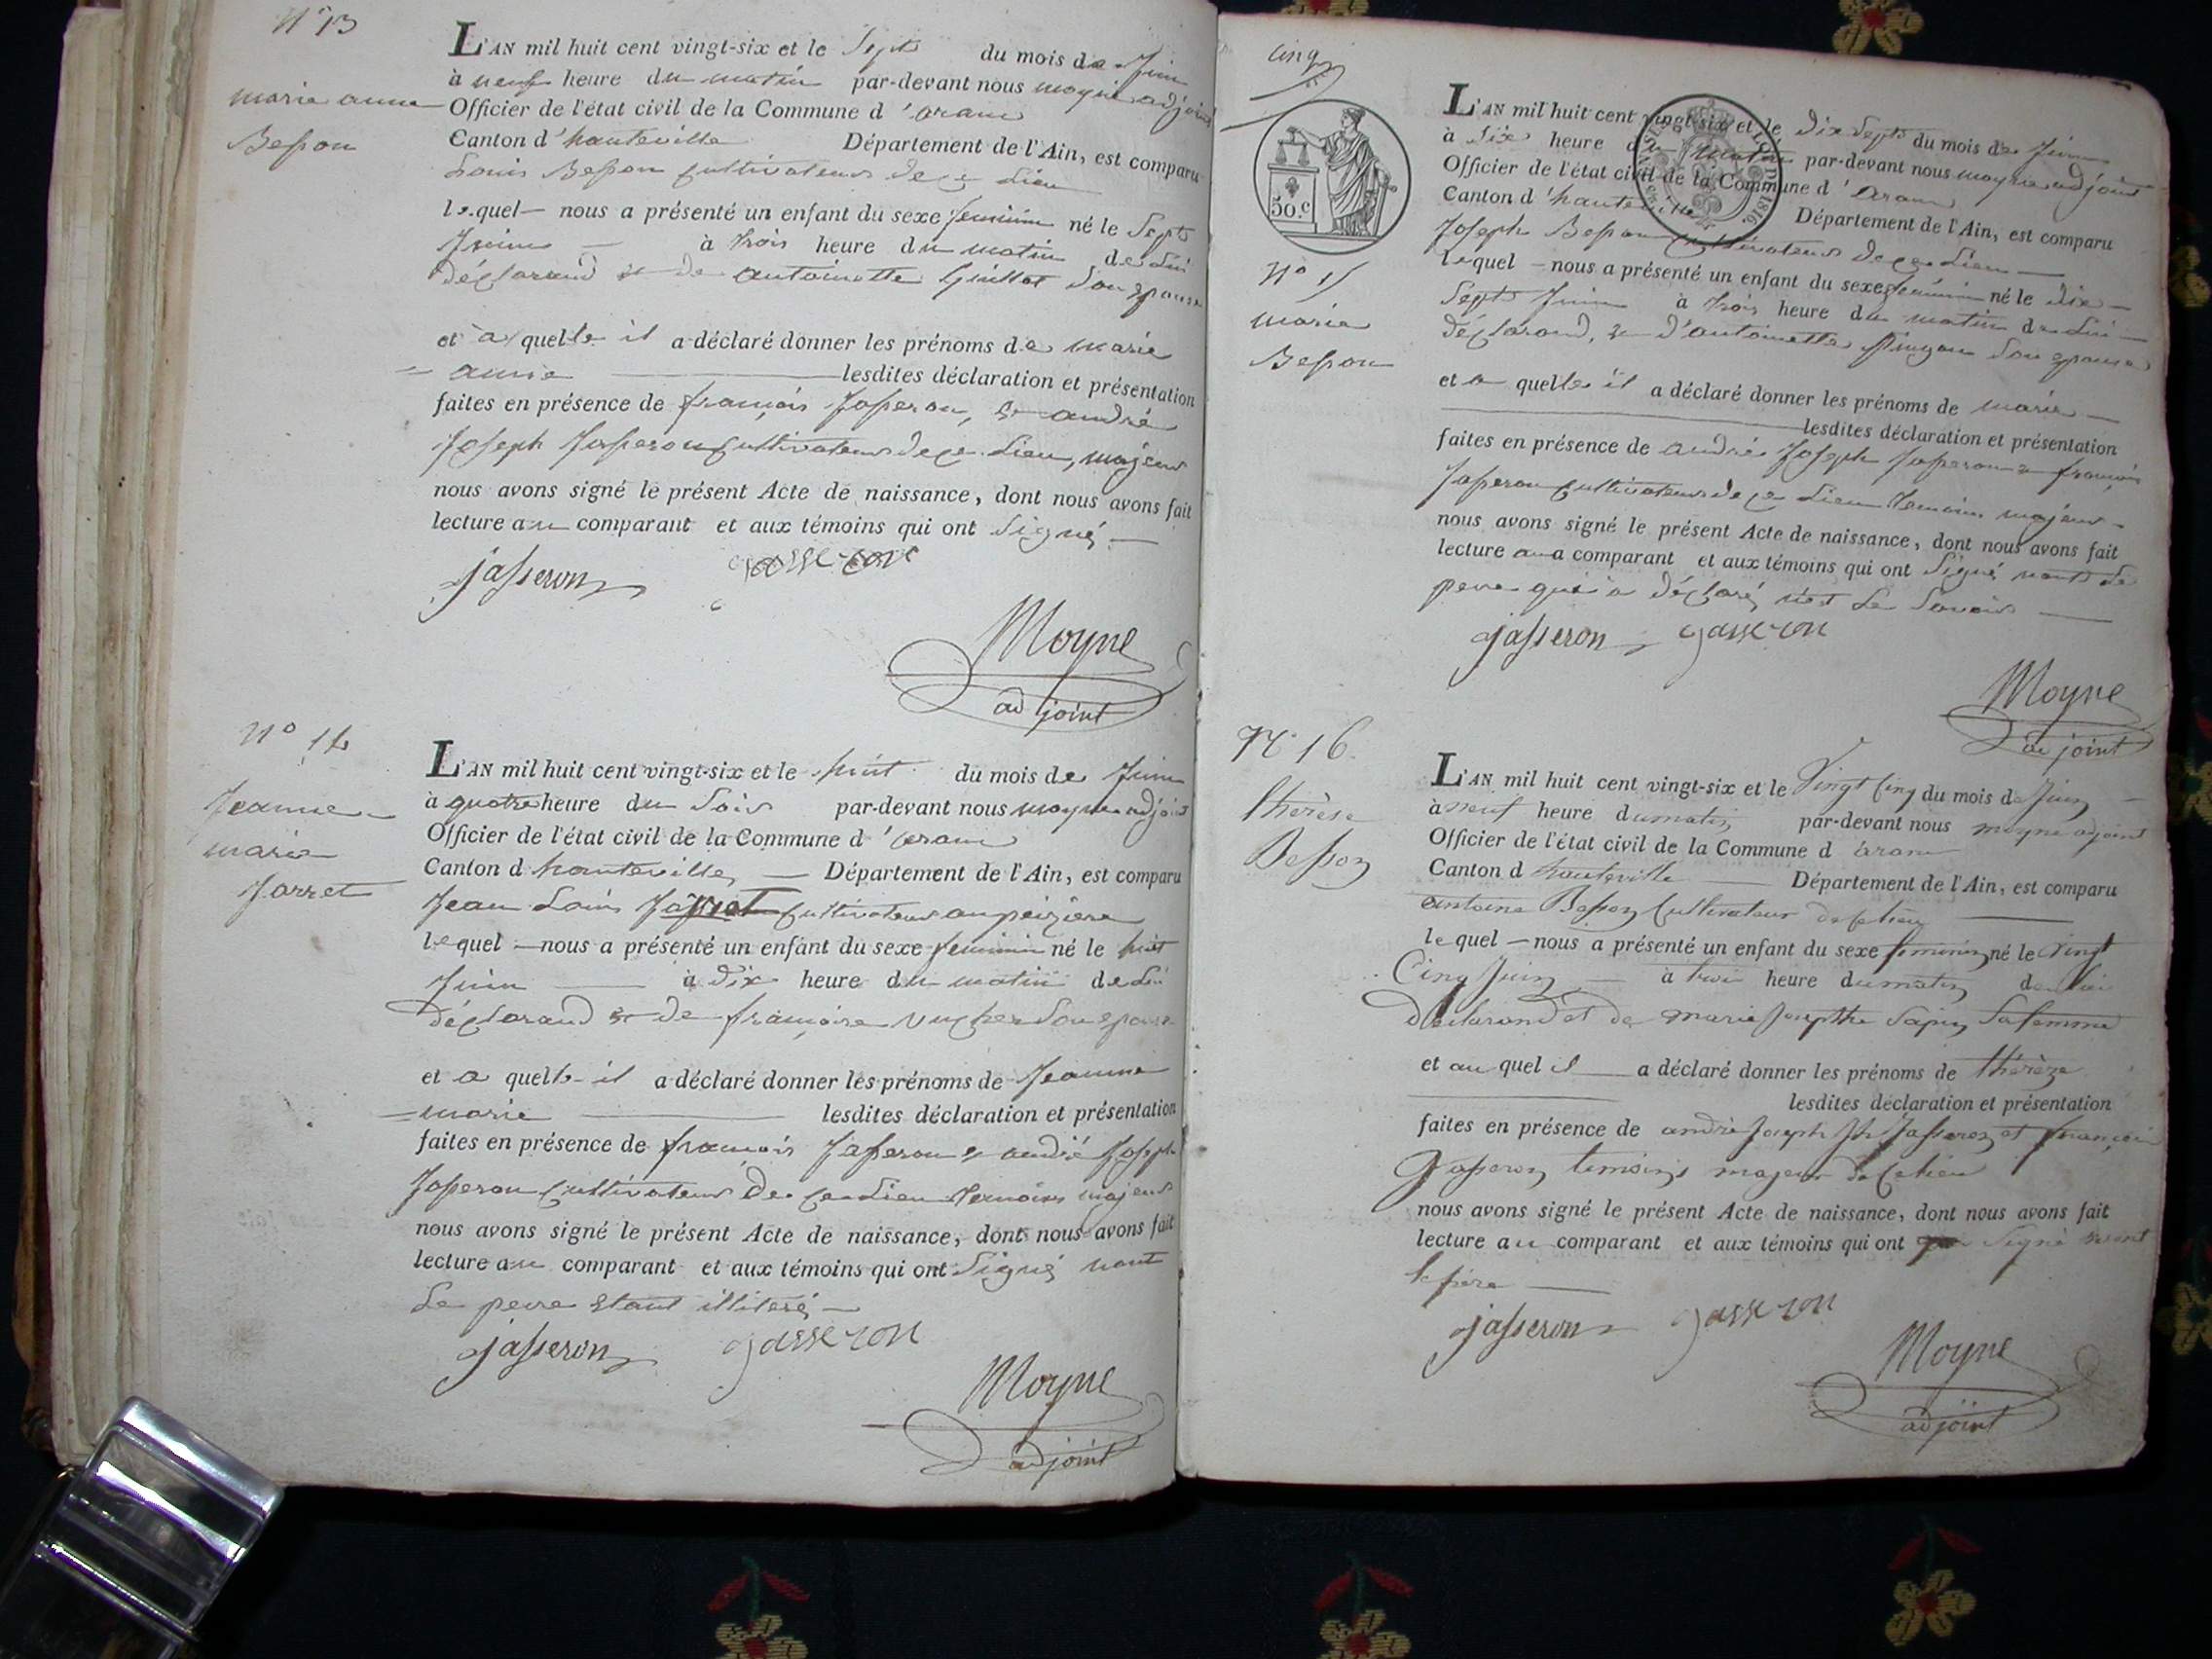 N° 13
marie anne
Besson
L'AN mil huit cent vingt-six et le Sept du mois de Juin
à neuf heure du matin par-devant nous moyne adjoint
Officier de l'état civil de la Commune d'aranc
Canton d'hauteville Département de l'Ain, est comparu
Louis Besson cultivateur de ce Lieu
lequel nous a présenté un enfant du sexe feminin né le Sept
Juin à trois heure du matin de Lui
déclarand et de antoinette Guillot Son epouse
et a quelle il a déclaré donner les prénoms de marie
anne lesdites déclaration et présentation
faites en présence de françois Jasseron, et andré
Joseph Jasseron cultivateurs de ce Lieu, majeurs
nous avons signé le présent Acte de naissance, dont nous avons fait
lecture au comparant et aux témoins qui ont Signé
jasseron jasseron
Moyne
adjoint
N° 14
Jeanne
marie
Jarret
L'AN mil huit cent vingt-six et le huit du mois de Juin
à quatre heure du Soir par-devant nous moyne adjoint
Officier de l'état civil de la Commune d'aranc
Canton d hauteville Département de l'Ain, est comparu
Jean Louis Jarret cultivateur
lequel nous a présenté un enfant du sexe feminin né le huit
Juin à Dix heure du matin de Lui
déclarand et de françoise Son epouse
et a quelle il a déclaré donner les prénoms de Jeanne
marie lesdites déclaration et présentation
faites en présence de françois Jasseron et andré Joseph
Jasseron cultivateurs De ce Lieu temoins majeurs
nous avons signé le présent Acte de naissance, dont nous avons fait
lecture au comparant et aux témoins qui ont Signé
Le pere etant illiteré
jasseron jasseron
Moyne
adjoint
cinq
50.c
N° 15
marie
Besson
L'AN mil huit cent vingt-six et le dix Sept du mois de Juin
à Six heure du matin par-devant nous moyne adjoint
Officier de l'état civil de la Commune d'aranc
Canton d'hauteville Département de l'Ain, est comparu
Joseph Besson cultivateur de ce Lieu
lequel nous a présenté un enfant du sexe feminin né le dix
Sept Juin à trois heure du matin de Lui
déclarand, et d'antoinette Son epouse
et a quelle il a déclaré donner les prénoms de marie
lesdites déclaration et présentation
faites en présence de andré Joseph Jasseron et françois
Jasseron cultivateurs de ce Lieu temoins majeurs
nous avons signé le présent Acte de naissance, dont nous avons fait
lecture au comparant et aux témoins qui ont Signé Le
pere qui a déclaré Le Savoir
jasseron jasseron
Moyne
adjoint
N° 16
thérèse
Besson
L'AN mil huit cent vingt-six et le Vingt Cinq du mois de Juin
à neuf heure du matin par-devant nous moyne adjoint
Officier de l'état civil de la Commune d aranc
Canton d hauteville Département de l'Ain, est comparu
antoine Besson Cultivateur de ce lieu
lequel nous a présenté un enfant du sexe feminin né le Vingt
Cinq Juin à troi heure du matin de lui
declarand et de marie Sapin Sa femme
et au quel il a déclaré donner les prénoms de thérèze
lesdites déclaration et présentation
faites en présence de andré Joseph Jasseron et françois
Jasseron temoins majeur de ce lieu
nous avons signé le présent Acte de naissance, dont nous avons fait
lecture au comparant et aux témoins qui ont Signé
le père
jasseron jasseron
Moyne
adjoint